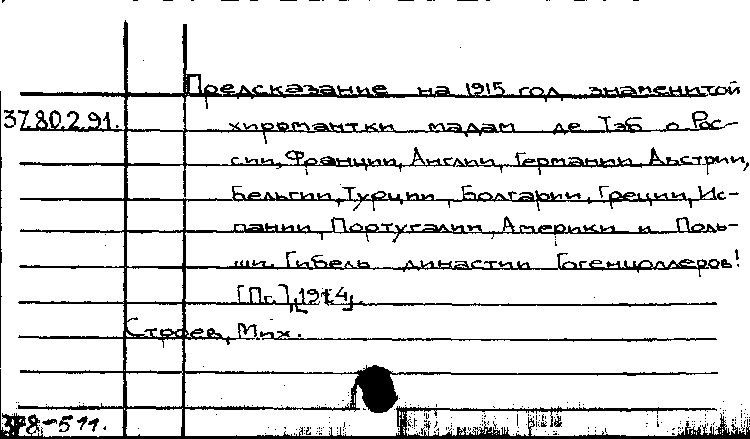 Предсказание на 1915 год знаменитой
37.80.2.91.
хиромантки мадам де Тэб о Рос-
сии, Франции, Англии, Германии Австрии,
Бельгии, Турции, Болгарии, Греции, Ис-
пании, Португалии, Америки и Поль-
ши. Гибель династии Гогенцоллеров!
[Пг.], [1914].
Строев, Мих.
-511.